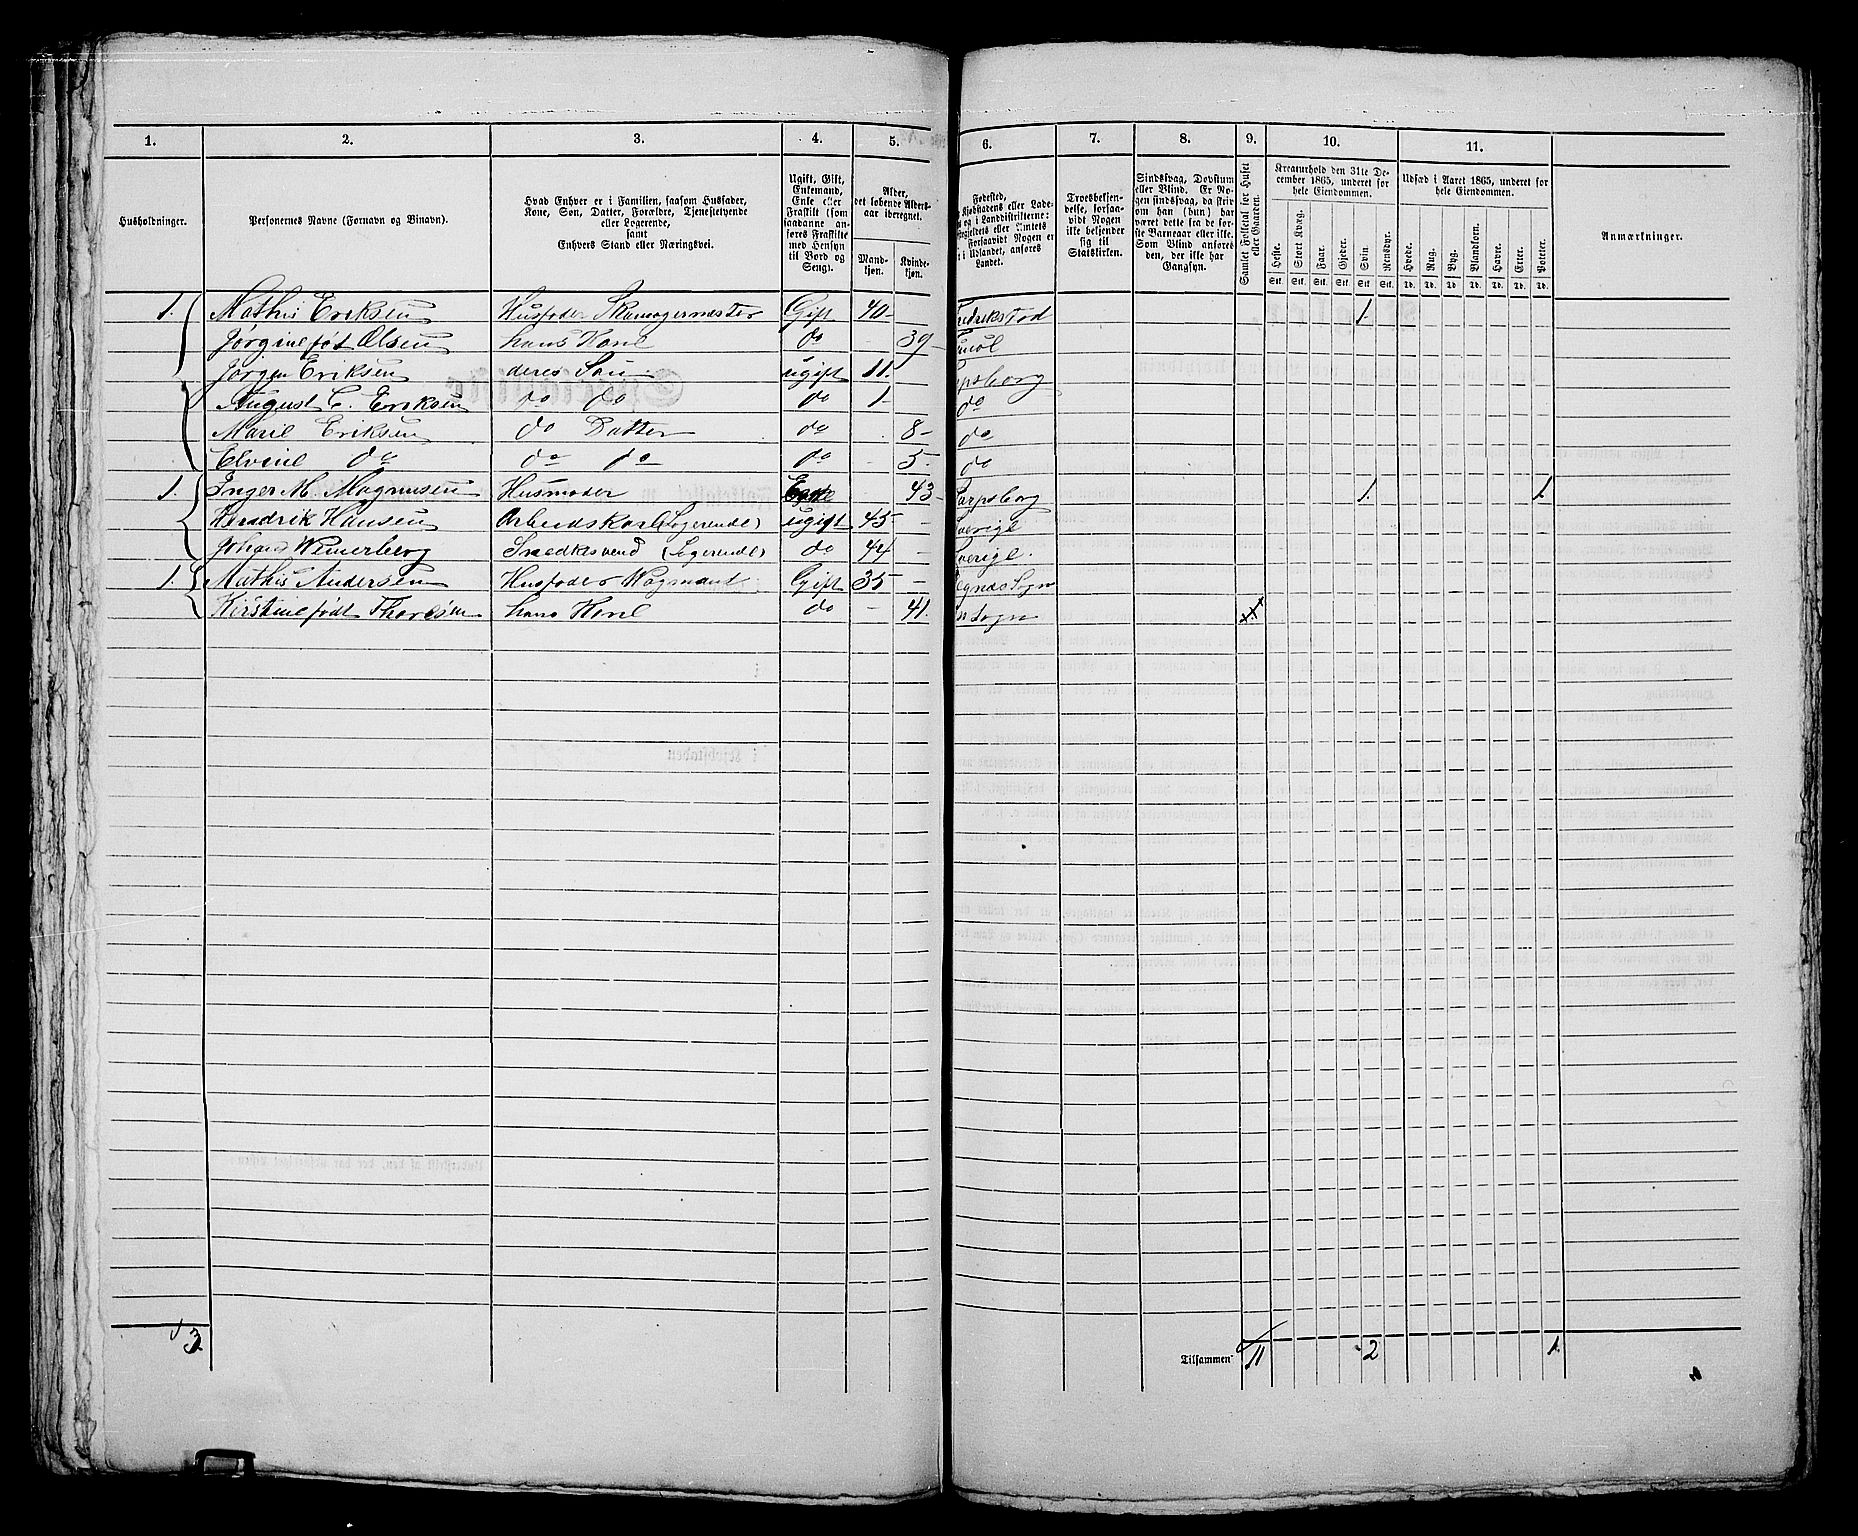 1. 2. 3. 4. 5. 6. 7. 8. 9. 10. 11.
Husholdninger.
Personernes Navne (Fornavn og Binavn).
Hvad Enhver er i Familien, saasom Husfader,
Kone, Søn, Datter, Forældre, Tjenestetyende
eller Logerende,
samt
Enhvers Stand eller Næringsvei.
Ugift, Gift,
Enkemand,
Enke eller
Fraskilt (som
saadanne an-
føres Fraskilte
med Hensyn
til Bord og
Seng).
Alder,
det løbende Alders-
aar iberegnet.
Mand-
kjøn.
Kvinde-
kjøn.
Fødested,
Kjøbstadens eller Lade-
og i Landdistrikterne:
eller Amtets
Forsaavidt Nogen er
i Udlandet, anføres
Landet.
Troesbekjen-
delse, forsaa-
vidt Nogen
ikke bekjender
sig til
Statskirken.
Sindssvag, Døvstum
eller Blind. Er No-
gen sindssvag, da skriv
om han (hun) har
været dette fra de før-
ste Barneaar eller ikke.
Som Blind anføres
den, der ikke har
Gangsyn.
Samlet Folketal for Huset
eller Gaarden.
Kreaturhold den 31te De-
cember 1865, underet for
hele Eiendommen.
Heste. Stort Kvæg. Faar. Gjeder. Svin. Rensdyr.
Stk. Stk. Stk. Stk. Stk. Stk.
Udsæd i Aaret 1865, underet for
hele Eiendommen.
Hvede. Rug. Byg. Blandkorn. Havre. Erter. Poteter.
Td. Td. Td. Td. Td. Td. Td.
Anmærkninger.
1. Mathis Eriksen Husfader Skomagermester Gift 40 redrikstad 1.
Jørgine født Olsen hans Kone do 39
Jørgen Eriksen deres Søn ugift 11. rpsborg
August C. Eriksen do do do 1 do
Marie Eriksen do Datter do 8 do
Elvine do do do do 5. do
1. Inger M. Magnusen Husmoder 43 Sarpsborg 1. 1
Hendrik Hansen Arbeidskarl (Logerende) ugift 45 Sverige
Johan Snedkesvend (Logerende) do 44 Sverige.
1. Mathis Andersen Husfader Vogmand Gift 35 Sogn
Kirstine født Thoresen hans Kone do 41. Sogn
3 Tilsammen 11 2 1.